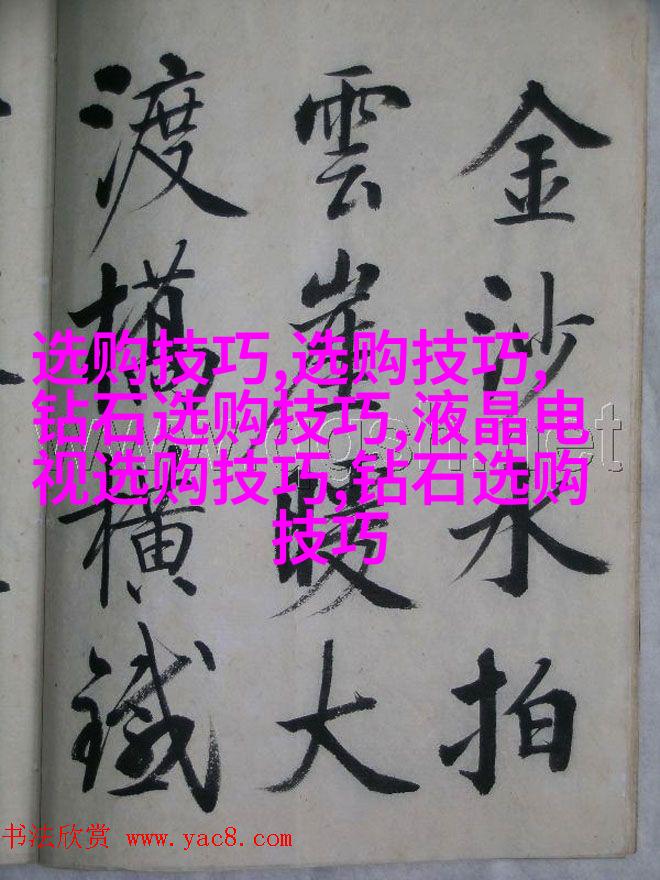 金沙水拍
雲崖暖大
渡橋横鐵
选购技巧,选购技巧,
钻石选购技巧,液晶电
视选购技巧,钻石选购
技巧
书法欣赏 www.yac8.com